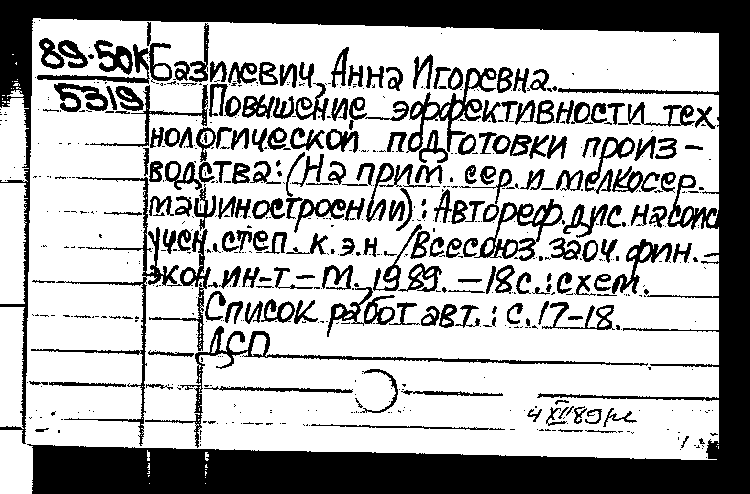 89-50К Базилевич, Анна Игоревна.
5319 Повышение эффективности тех-
нологической подготовки произ-
водства: (На прим. сер. и мелкосер.
машиностроении): Автореф. дис. на соиск.
учен. степ. к.э.н. /Всесоюз. заоч. фин.-
экон. ин-т.-М., 1989. -18с.: схем.
Список работ авт.: с.17-18.
ДСП
4 XII 89